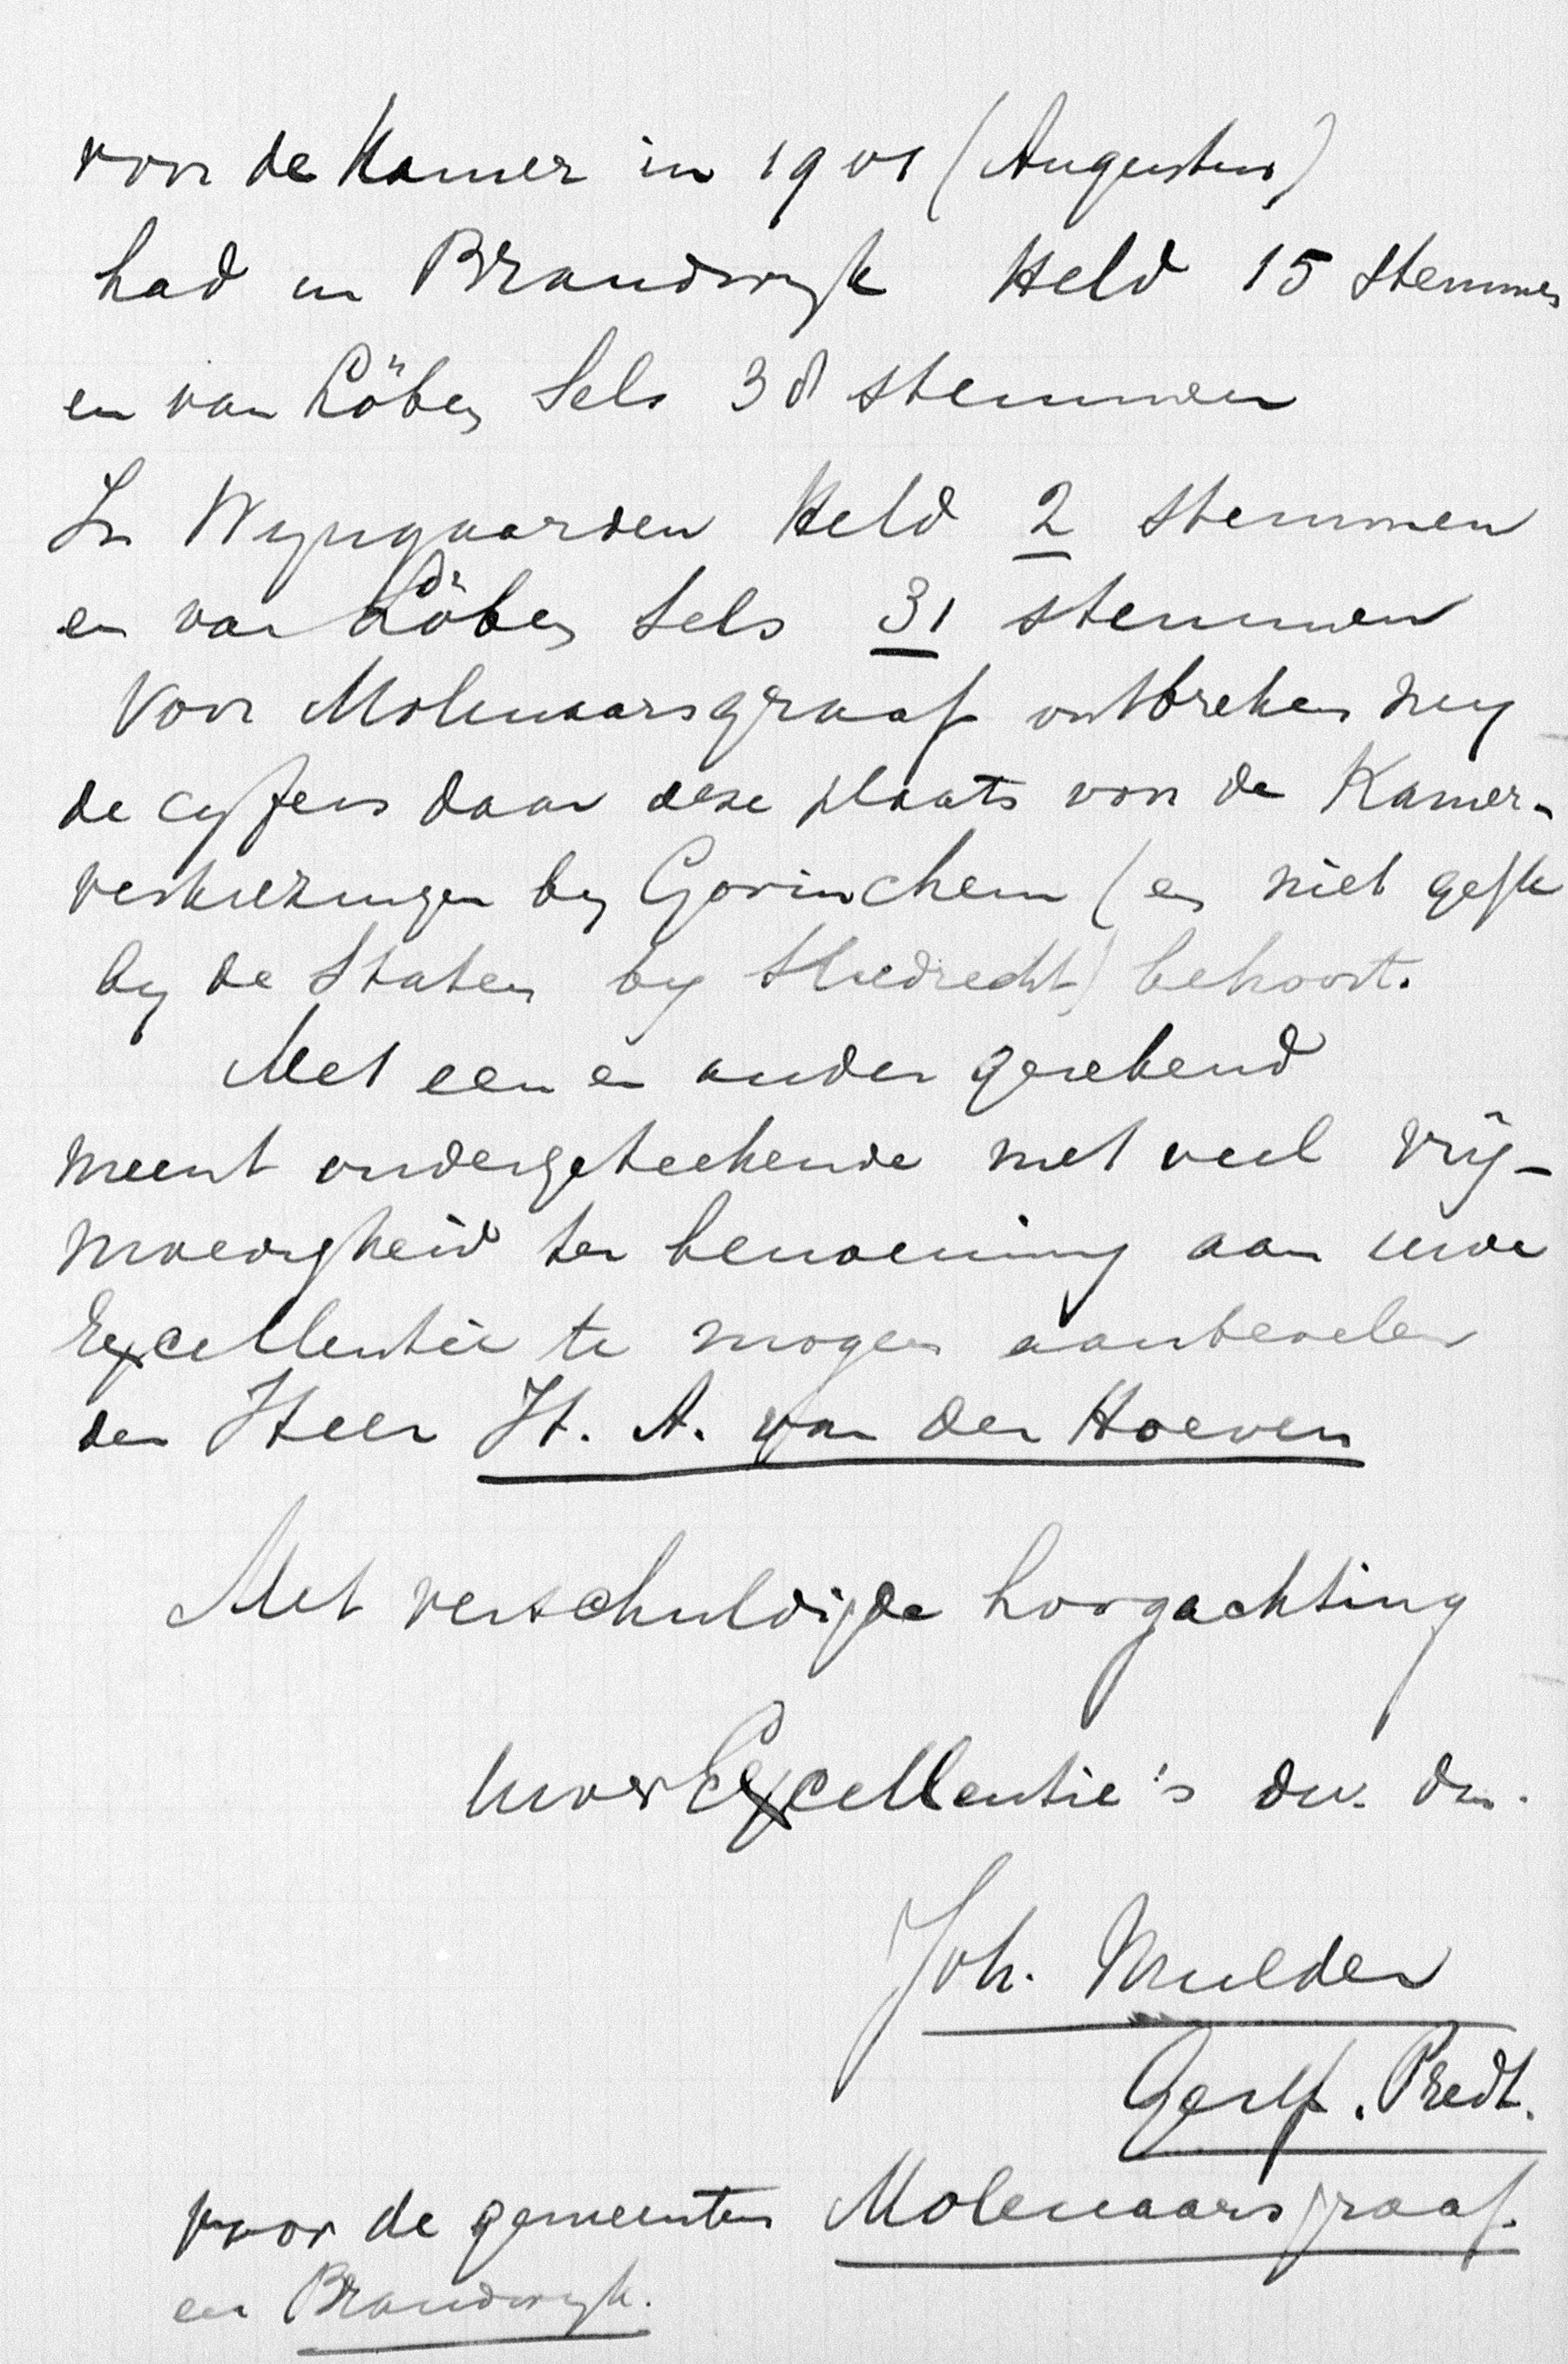 voor de Kamer in 1901 (Augustus)
had in Brandwijk Held 15 stemmen
en van Löben Sels 38 stemmen
In Wijngaarden Held 2 stemmen
en van Löben Sels 31 stemmen
Voor Molenaarsgraaf ontbreken mij
de cijfers daar deze plaats voor de Kamer-
verkiezingen bij Gorinchem (en niet gelijk
bij de Staten bij Sliedrecht) behoort.
Met een en ander gerekend
meent ondergeteekende met veel vrij-
moedigheid ter benoeming aan uwe
Excellentie te mogen aanbevelen
den Heer H. A. van der Hoeven
Met verschuldigde hoogachting
Uwer Excellentie's dw. dn.
Joh. Mulder
Geref. Predt.
voor de gemeenten Molenaarsgraaf.
en Brandwijk.